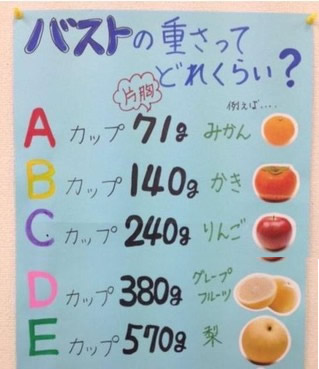 バストの重さって
どれくらい?
片胸
例えば....
A カップ 71g みかん
B カップ 140g かき
C カップ 240g りんご
D カップ 380g グレープ
フルーツ
E カップ 570g 梨